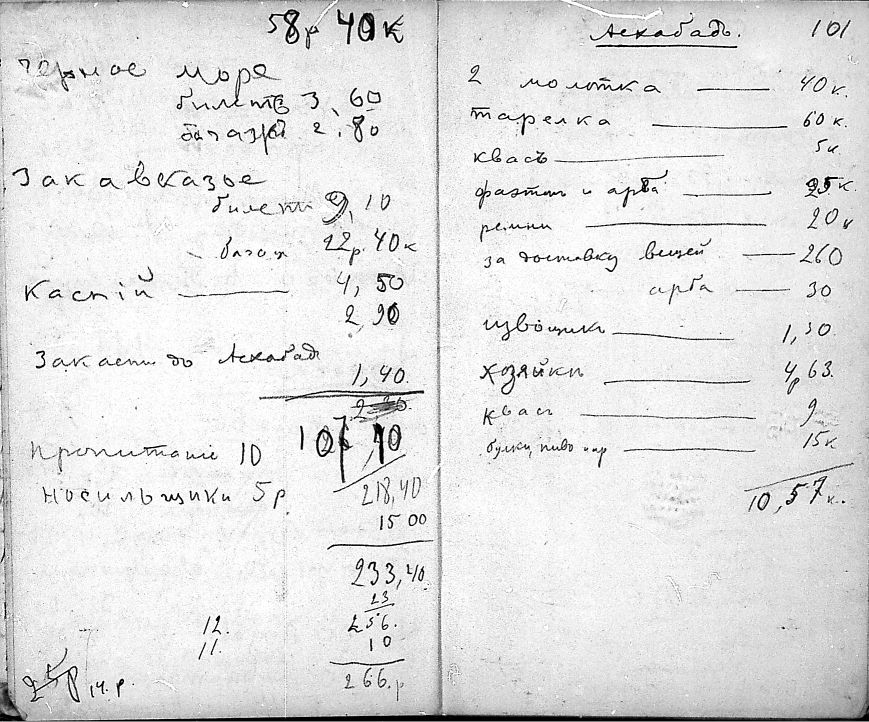 58р 40к
Черное море
билетъ 3,60
багажъ 2.80
Закавказье
билетъ 9,10
багаж 22р. 40к
Каспій — 4,50
2,90
Закасп. до Асхабад
1,40.
107,10
Пропитаніе 10
218,40
Носильщики 5р.
15 00
233,40
23
12. 256.
11. 10
25р 14.р. 266.р
Асхабадъ. 101
2 молотка — 40к.
тарелка — 60к.
квасъ — 5к.
фаэтонъ и арба — 95к.
ремни — 20к
за доставку вещей — 260
арба — 30
извощикъ — 1,30
хозяйкѣ — 4р 63.
квасъ — 9
булки, пиво — 15к
10,57к.